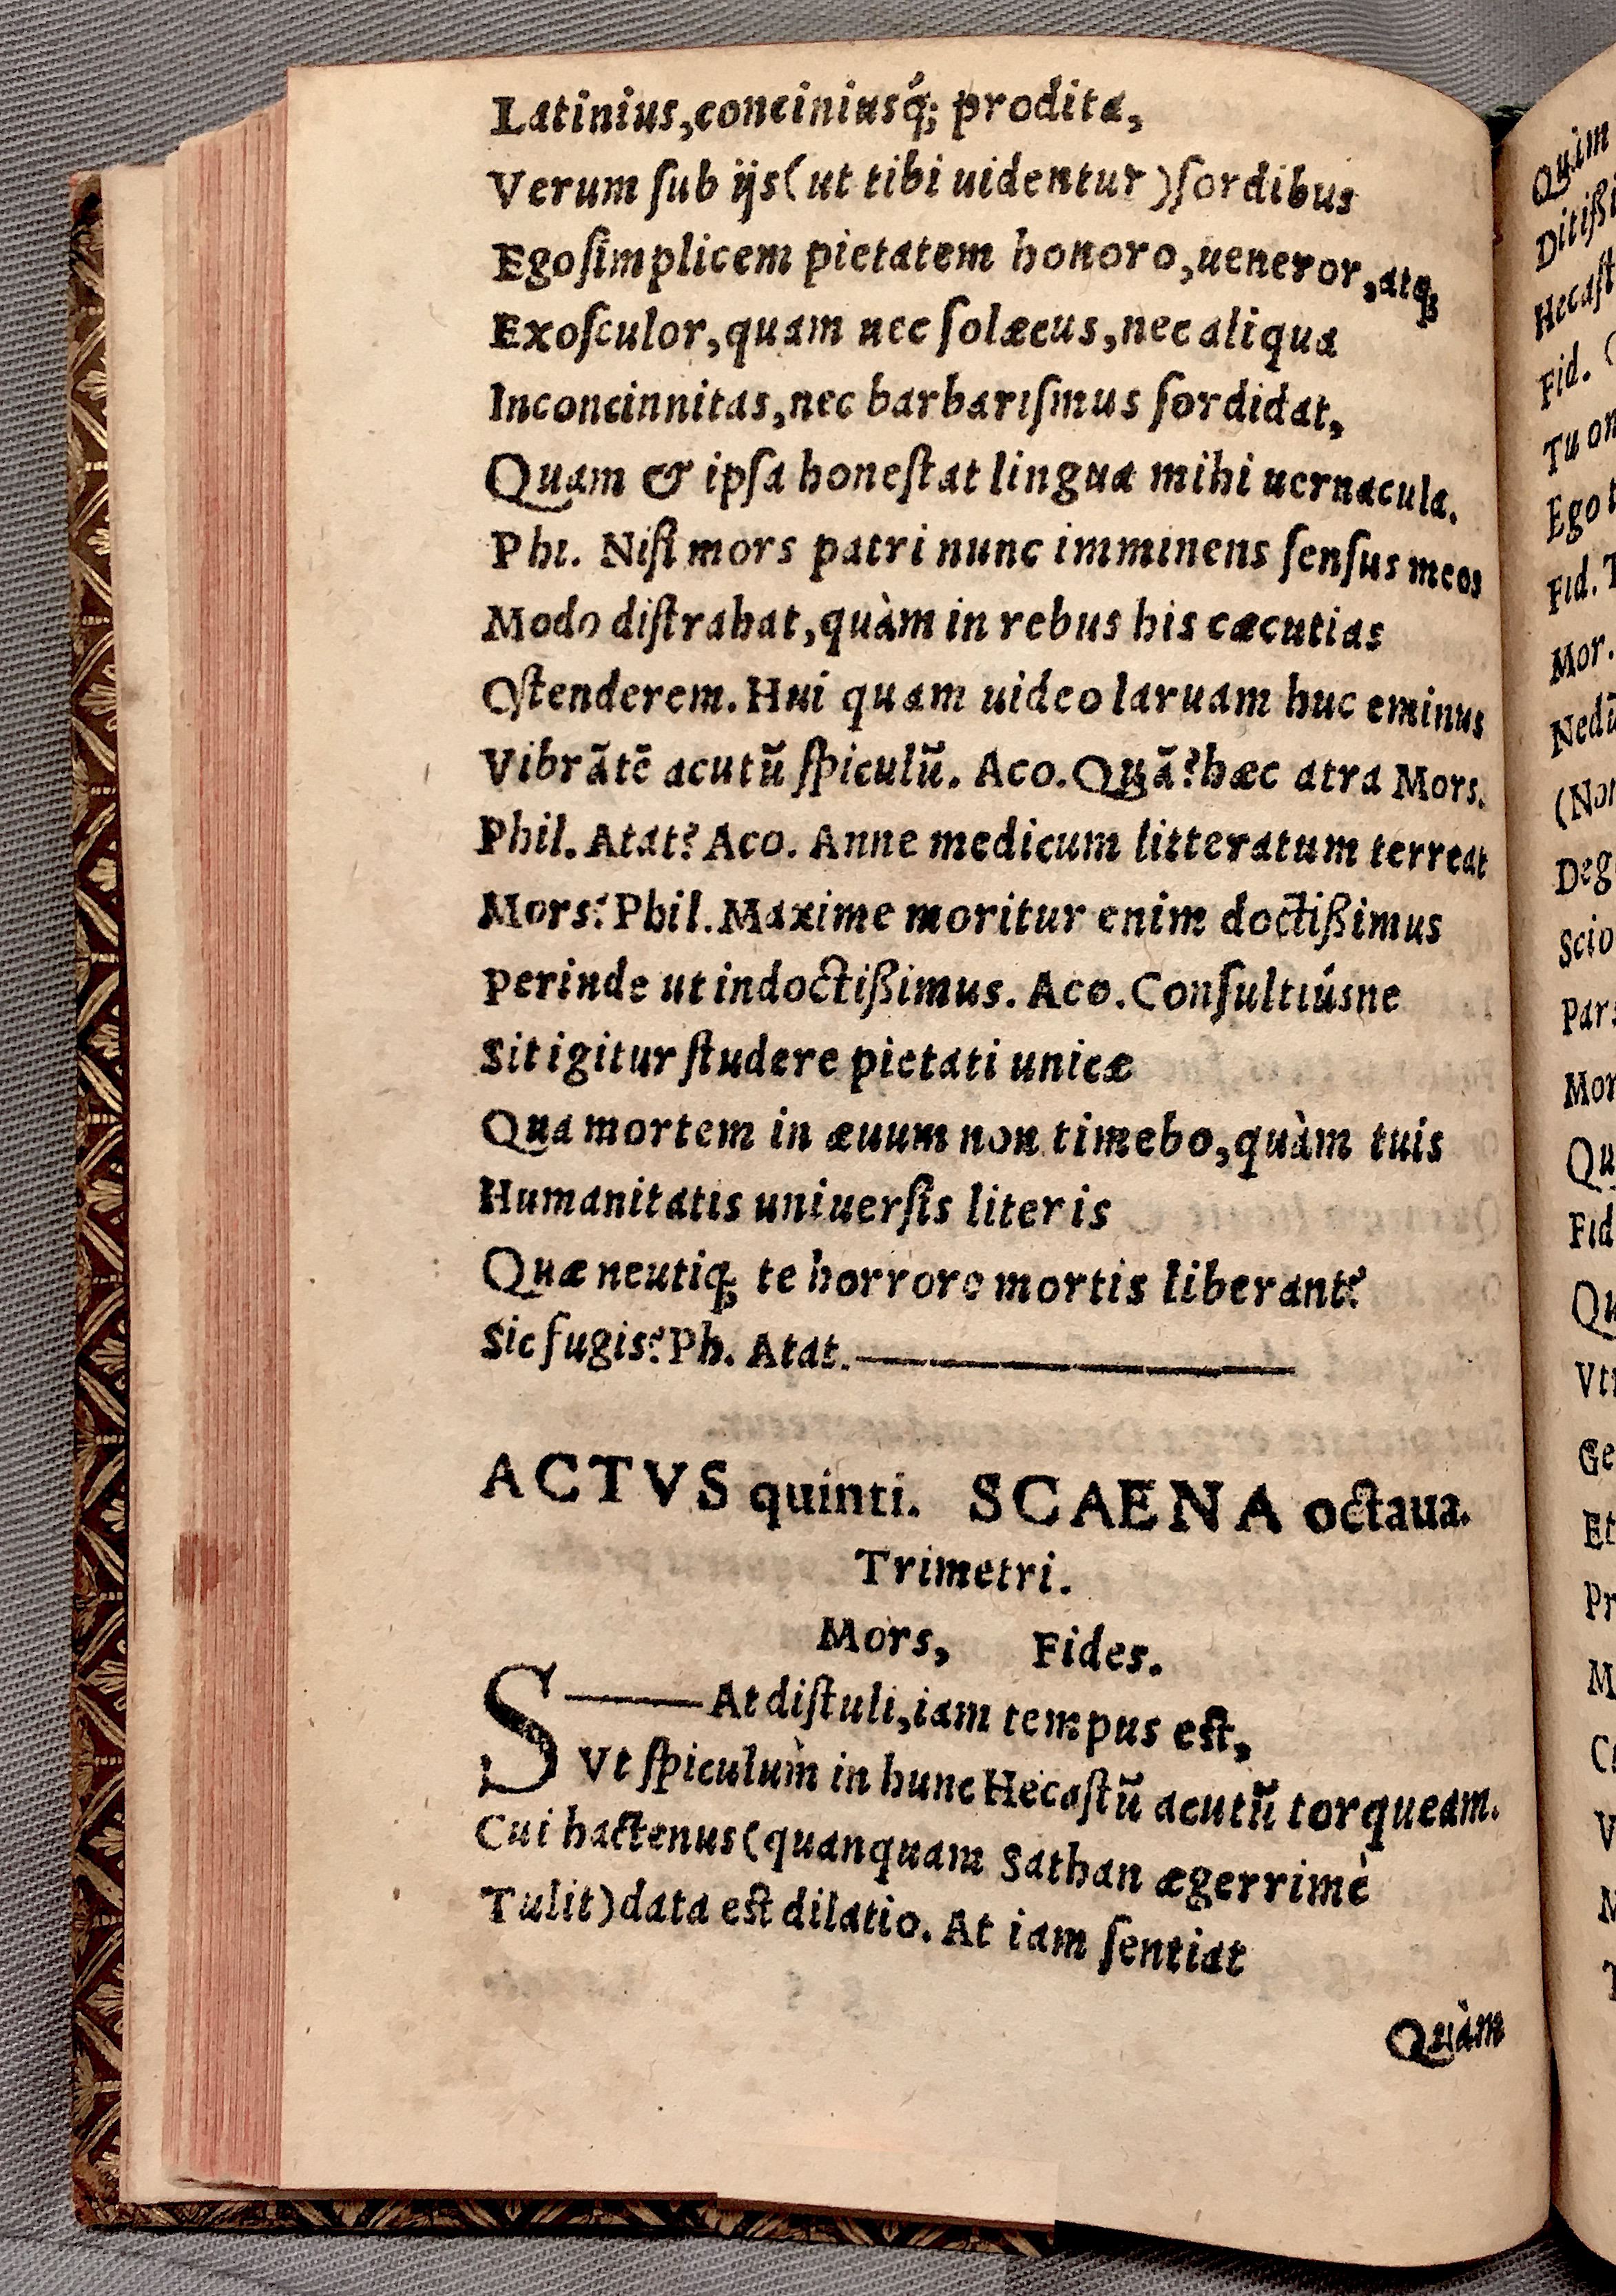 Latinius,conciniusq́; prodita,
Verum ſub ijs(ut tibi uidentur)ſordibus
Ego ſimplicem pietatem honoro,ueneror,atq;
Exoſculor,quam nec ſolæcus,nec aliqua
Inconcinnitas,nec barbariſmus ſordidat,
Quam & ipſa honeſtat lingua mihi uernacula.
Phi. Niſi mors patri nunc imminens ſenſus meos
Modo diſtrahat,quàm in rebus his cæcutias
Oſtenderem. Hui quam uideo laruam huc eminus
Vibrãtẽ acutũ ſpiculũ. Aco. Quã? hæc atra Mors.
Phil. Atat? Aco. Anne medicum litteratum terreat
Mors? Phil. Maxime moritur enim doctißimus
perinde ut indoctißimus. Aco. Conſultiúsne
Sit igitur ſtudere pietati unicæ
Qua mortem in æuum non timebo,quàm tuis
Humanitatis uniuerſis literis
Quæ neutiq; te horrore mortis liberant?
Sic fugis? Ph. Atat.
ACTVS quinti. SCAENA octaua.
Trimetri.
Mors, Fides.
S——At diſtuli,iam tempus est,
Vt ſpiculum in hunc Hecaſtũ acutũ torqueam.
Cui hactenus(quanquam Sathan ægerrimè
Tulit)data est dilatio. At iam ſentiat
Quàm
Quàm
Hecaſt
Fid.
Ego
Fid.
Mor.
Scio